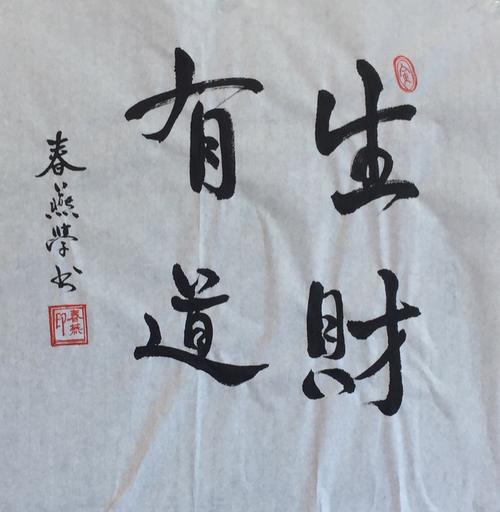 生財
有道
春燕学书
春燕
印